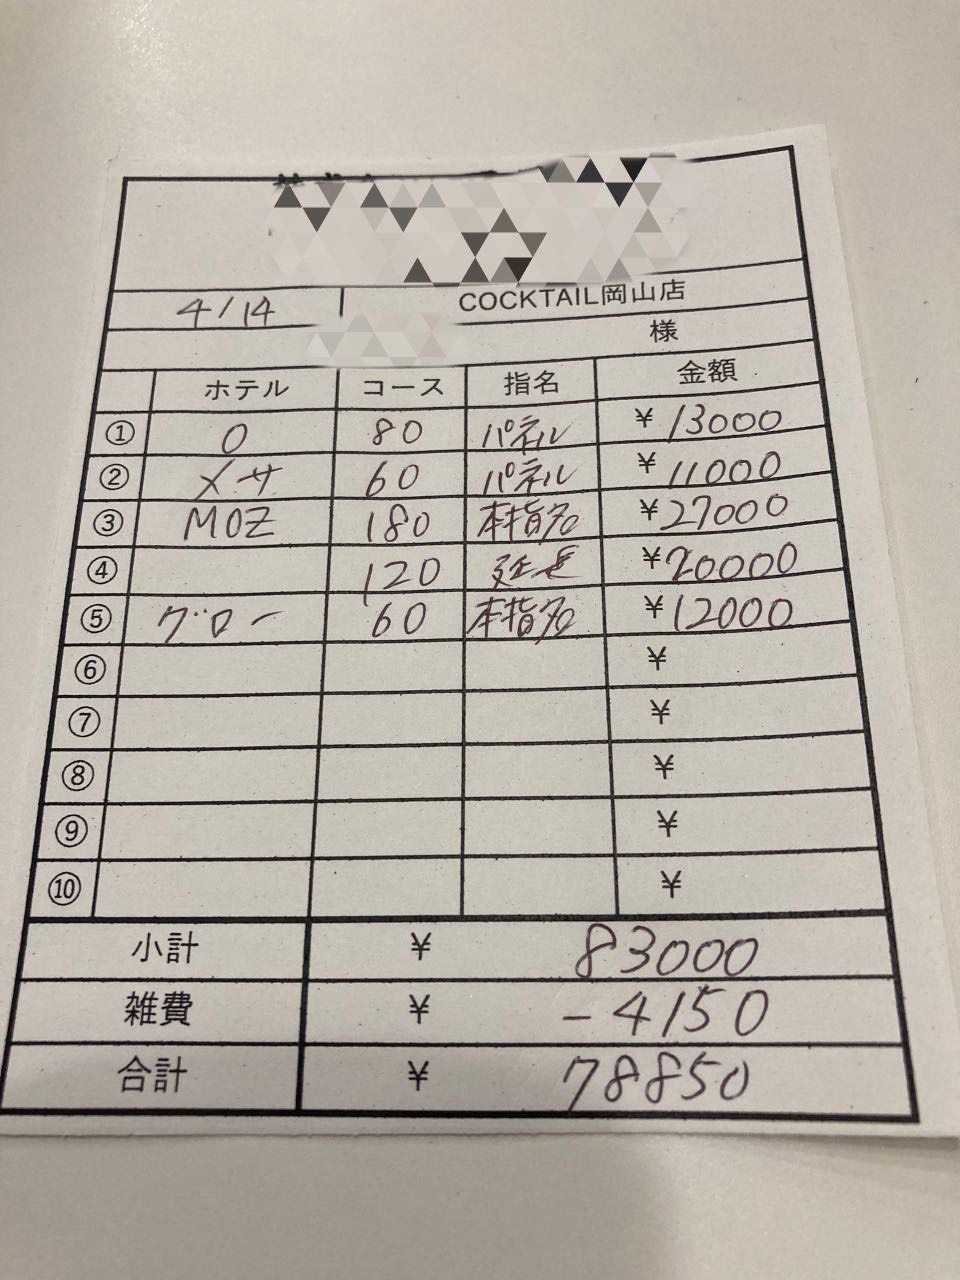 4/14 COCKTAIL岡山店
様
ホテル コース 指名 金額
① O 80 パネル ¥13000
② メサ 60 パネル ¥11000
③ MOZ 180 本指名 ¥27000
④ 120 延長 ¥20000
⑤ グロー 60 本指名 ¥12000
⑥ ¥
⑦ ¥
⑧ ¥
⑨ ¥
⑩ ¥
小計 ¥ 83000
雑費 ¥ -4150
合計 ¥ 78850